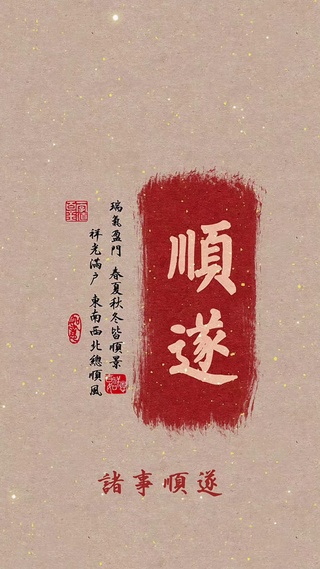 順遂
瑞氣盈門 春夏秋冬皆順景
祥光滿戶 東南西北總順風
諸事順遂